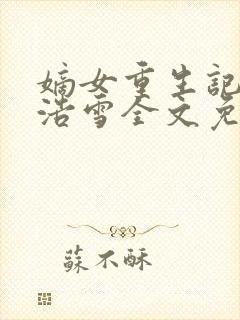 嫡女重生記
浩雪全文免
蘇不酥